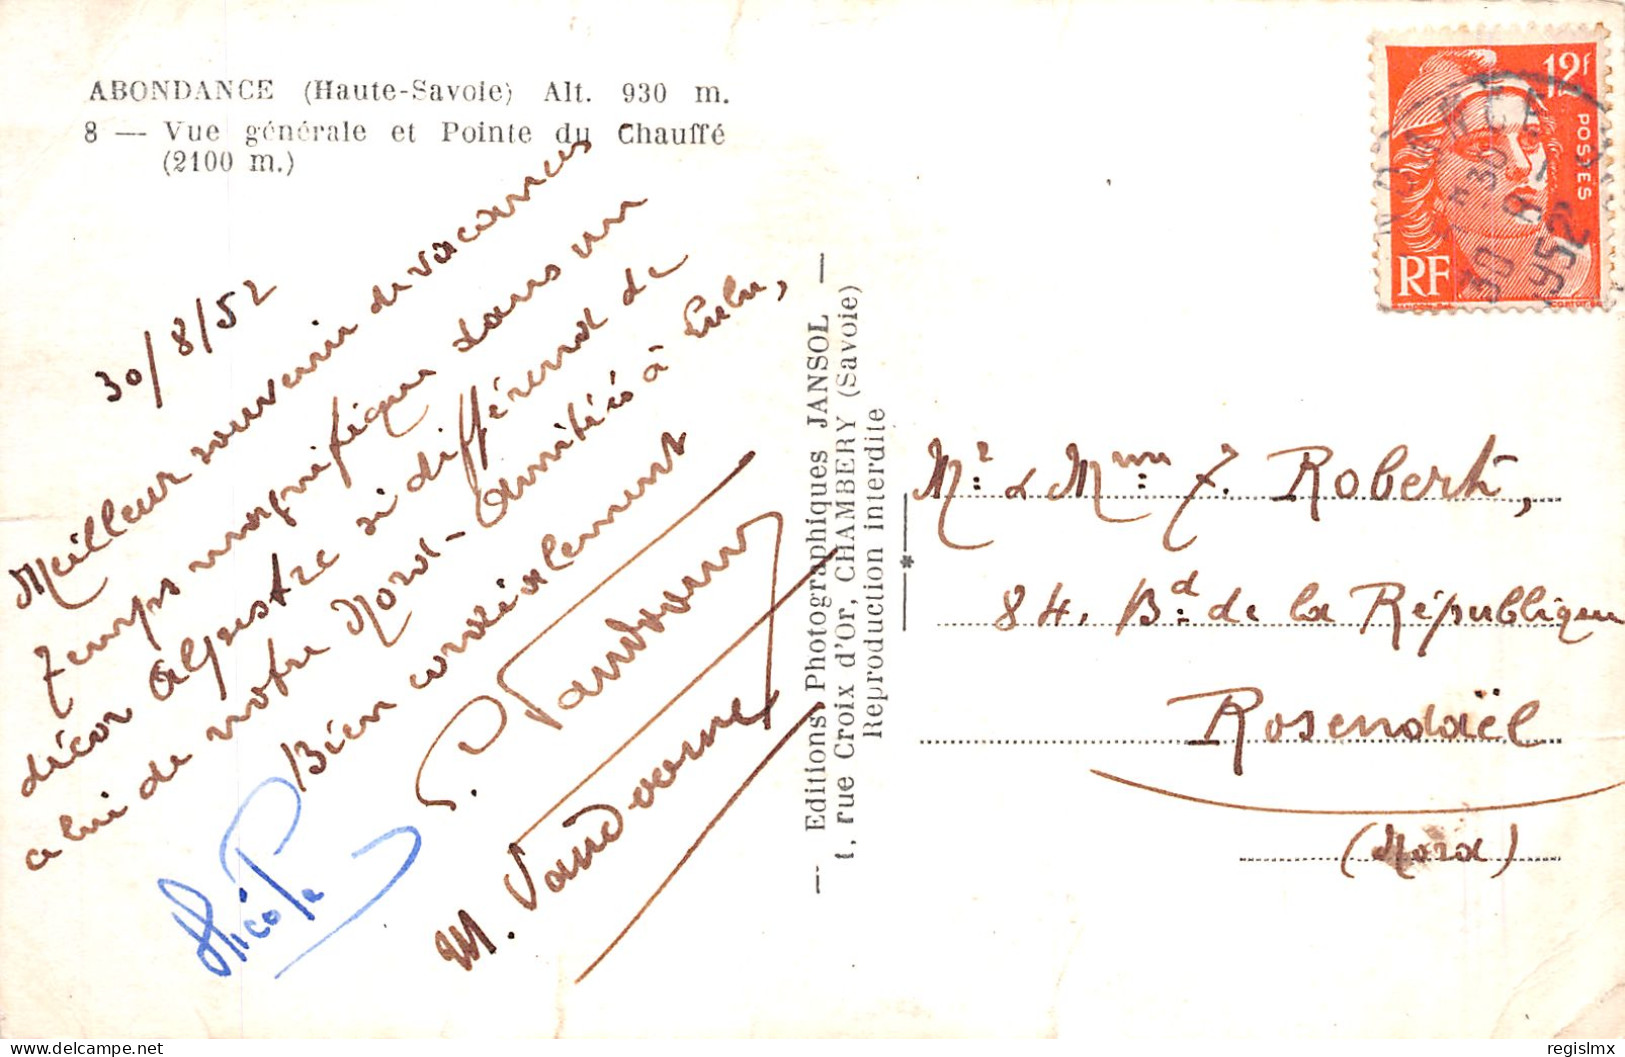 ABONDANCE (Haute-Savoie) Alt. 930 m.
8 — Vue générale et Pointe du Chauffé
(2100 m.)
30/8/52
Meilleur souvenir de vacances
Temps magnifique dans un
décor Alpestre si différend de
celui de notre Nord - Amitiés à Lulu,
Bien cordialement
Nicole
M. Vandaame
— Editions Photographiques JANSOL —
1, rue Croix d'Or, CHAMBERY (Savoie)
Reproduction interdite
*
12F
POSTES
RF
30
8
1952
Mr & Mme J. Robert,
84, Bd de la République
Rosendaël
(Nord)
© Delcampe - website
regislmx